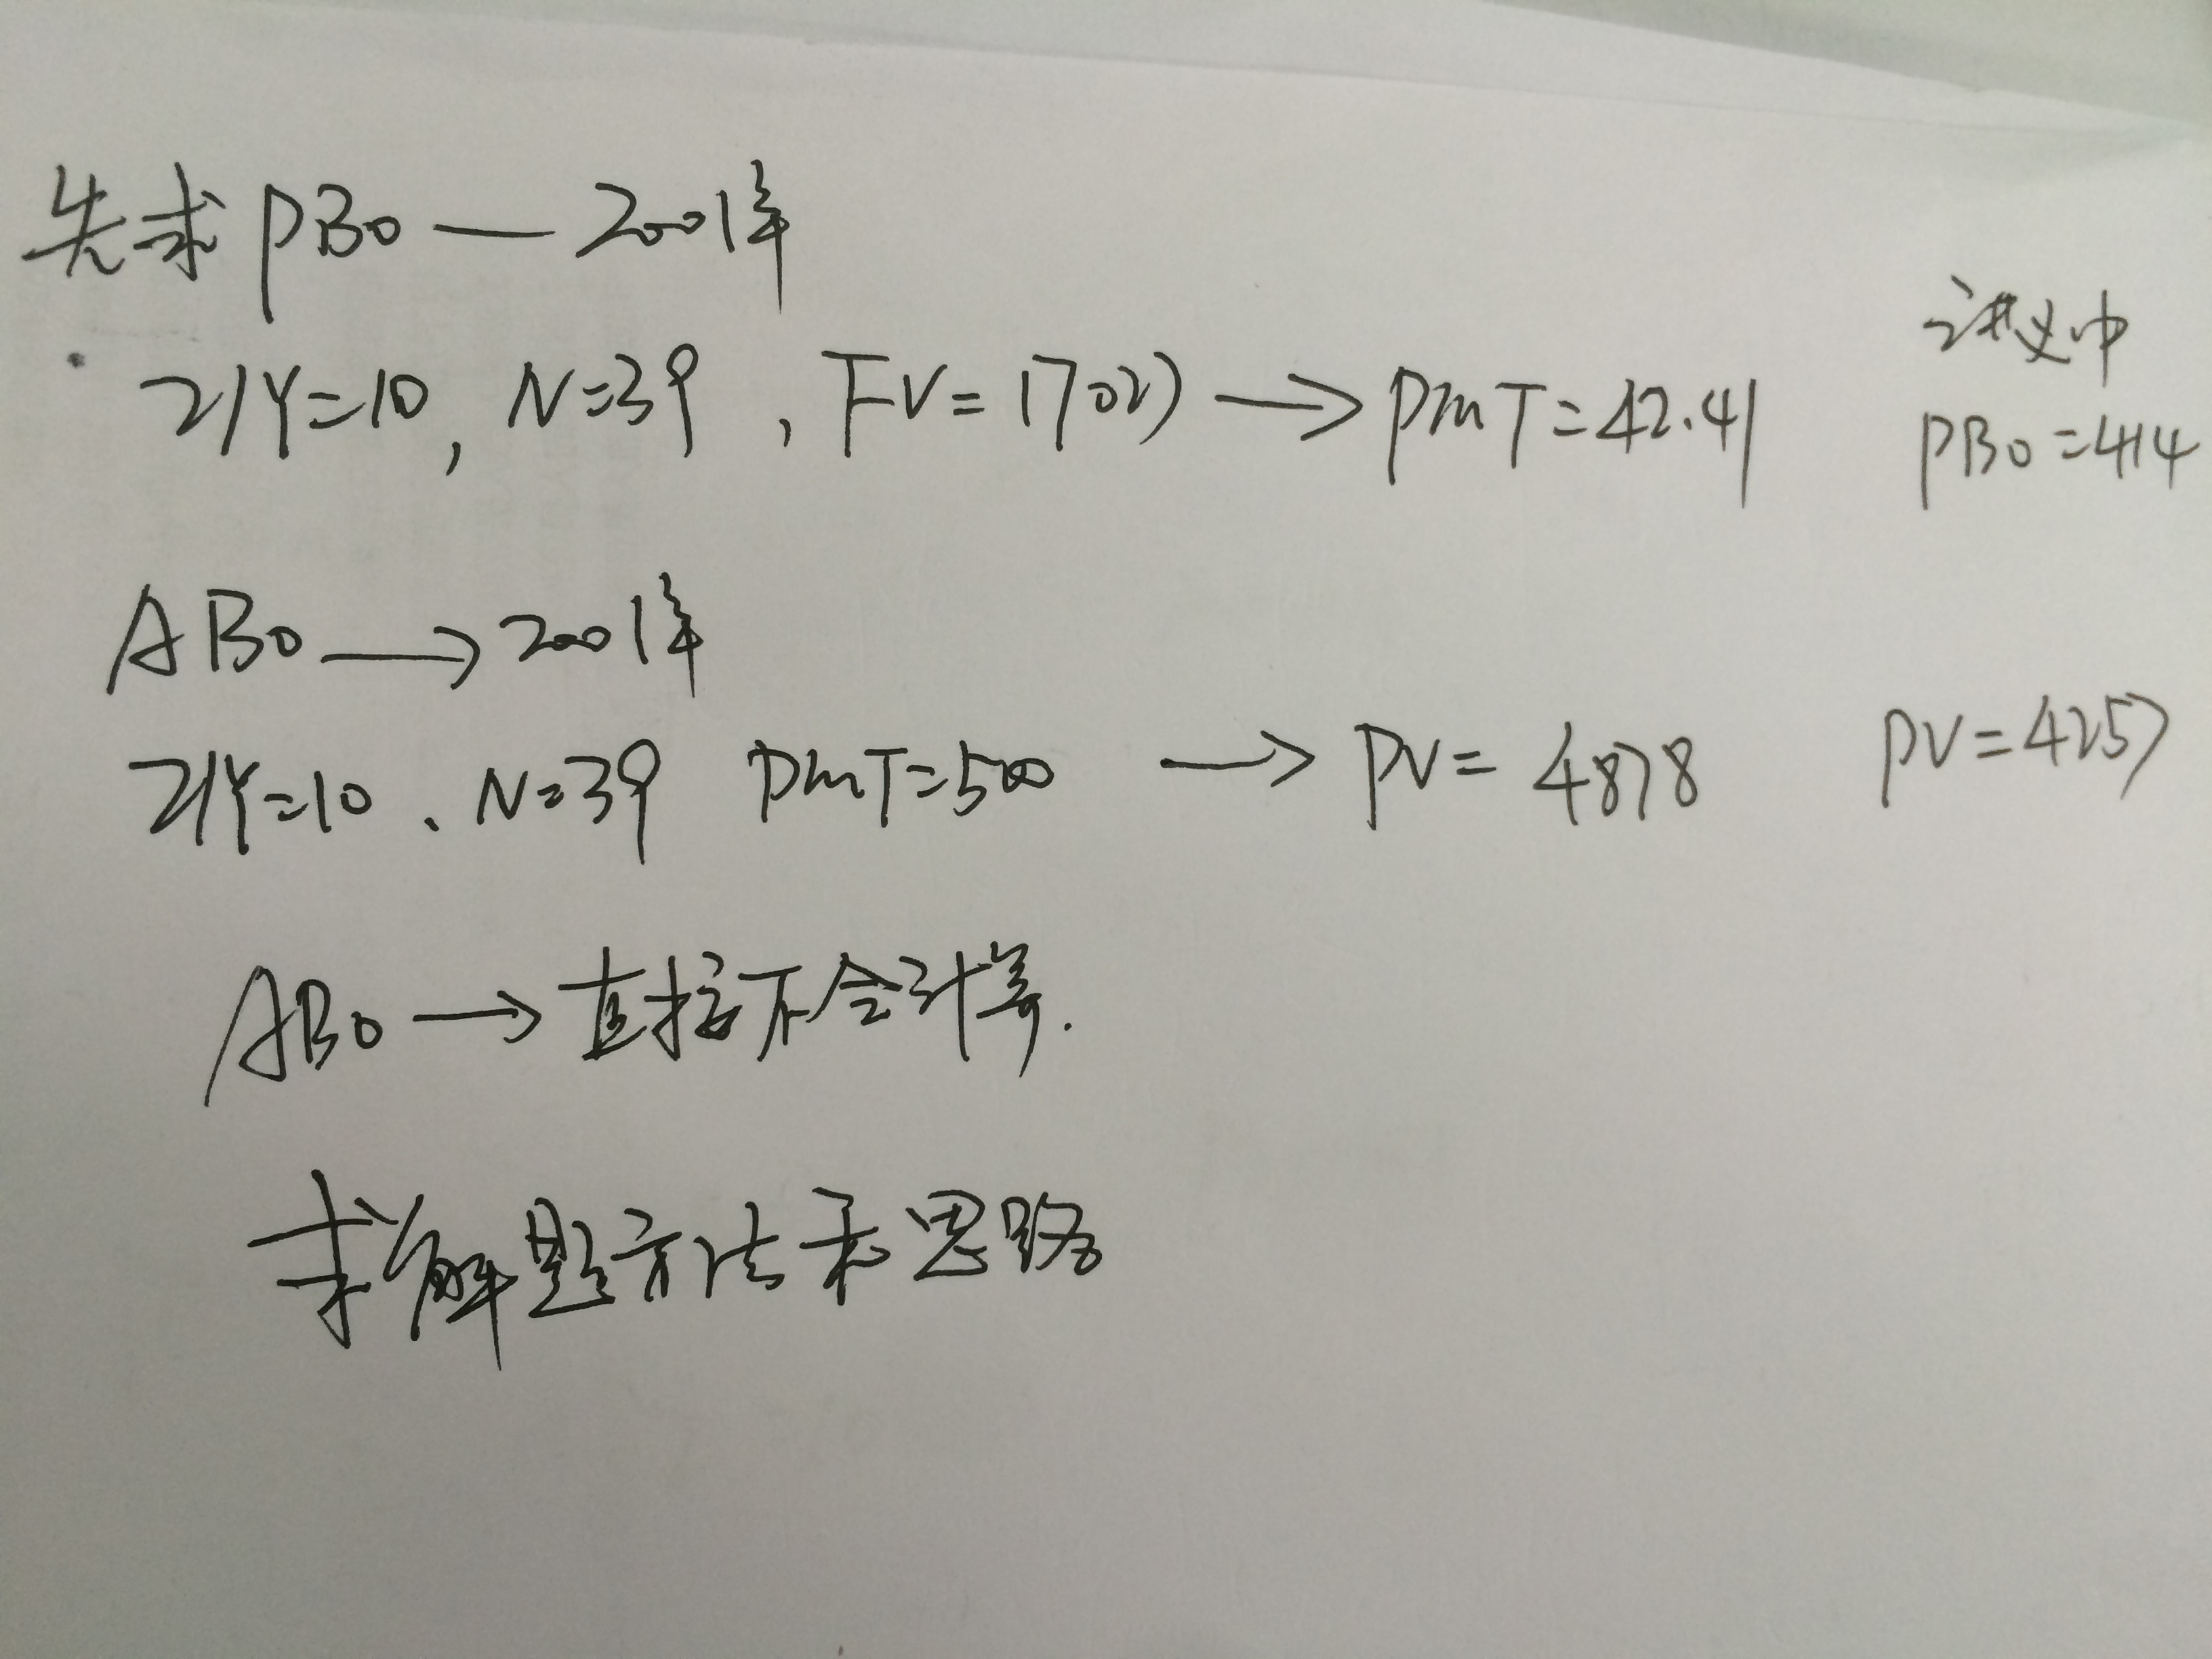 先求PBO — 2001年
I/Y=10, N=39, FV=17027 → PMT=42.41
讲义中
PBO=414
ABO → 2001年
I/Y=10、N=39 PMT=500 → PV=4878
PV=4257
ABO → 直接不会计算.
求解题方法和思路